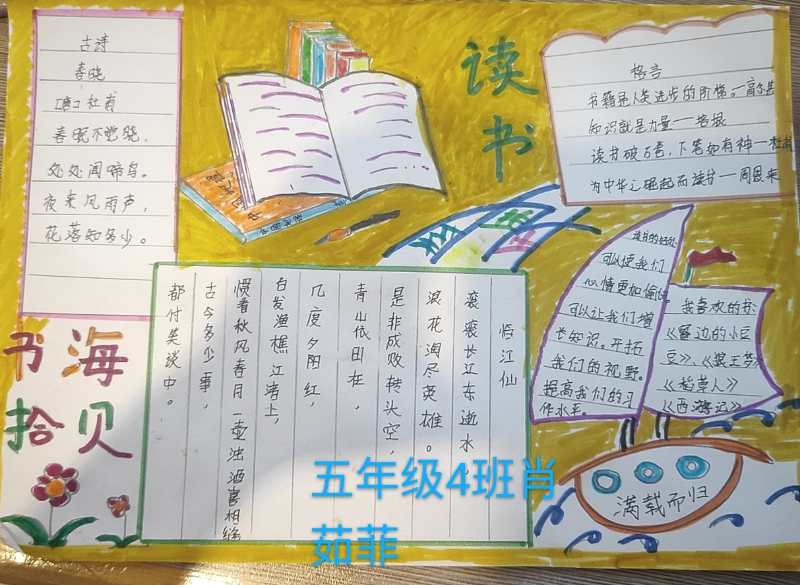 古诗
春晓
唐 杜甫
春眠不觉晓,
处处闻啼鸟。
夜来风雨声,
花落知多少。
读书
格言
书籍是人类进步的阶梯。—高尔基
知识就是力量——培根
读书破万卷,下笔如有神—杜甫
为中华之崛起而读书——周恩来
书海
拾贝
临江仙
滚滚长江东逝水
浪花淘尽英雄。
是非成败转头空,
青山依旧在,
几度夕阳红,
白发渔樵江渚上,
惯看秋风春月一壶浊酒喜相逢
古今多少事,
都付笑谈中。
读书的好处
可以使我们
心情更加愉悦
可以让我们增
长知识。开拓
我们的视野。
提高我们的习
作水平。
我喜欢的书
《窗边的小豆
豆》、
《稻草人》
《西游记》
满载而归
五年级4班肖
茹菲